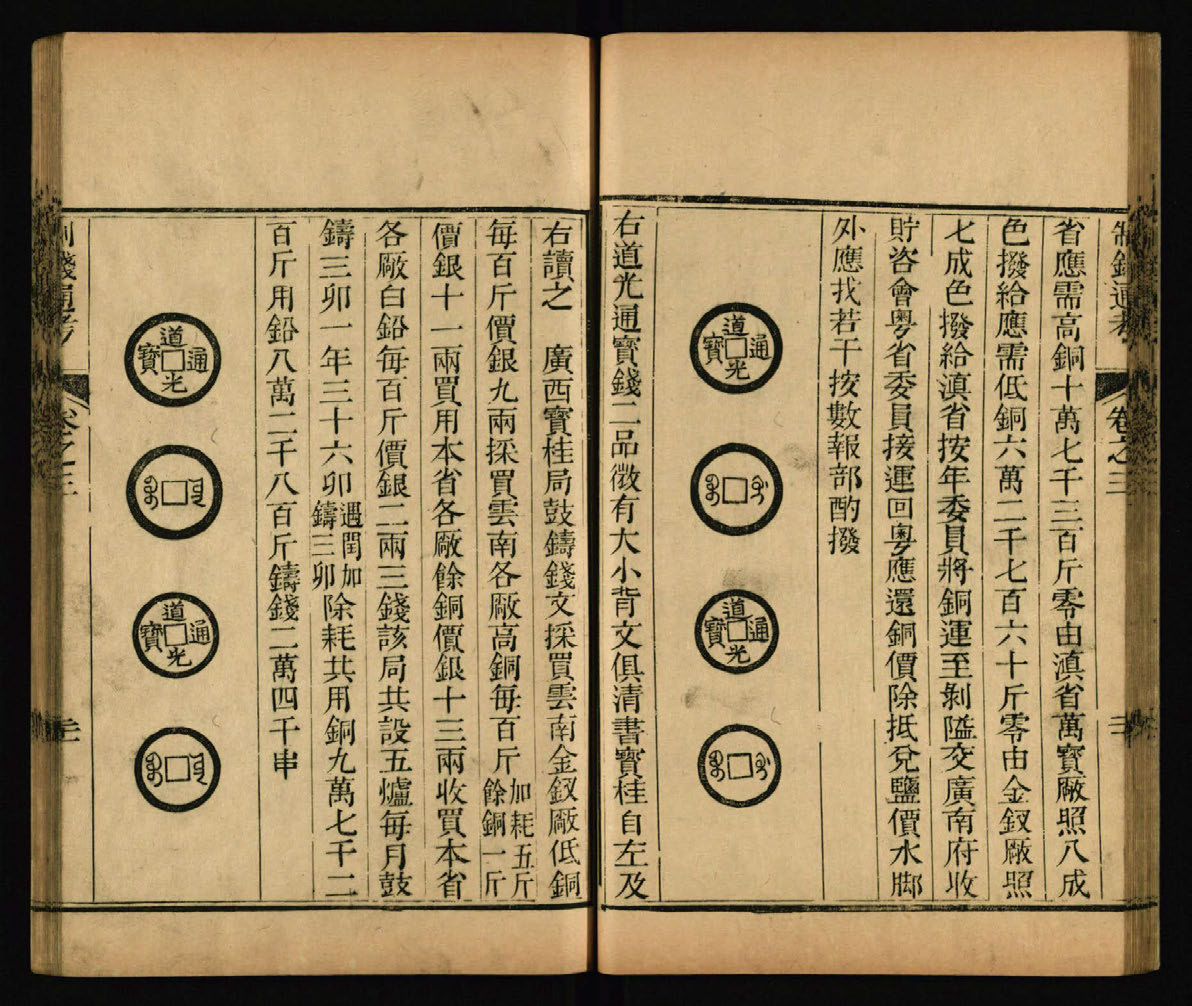 制錢通考
卷之三
省應需高銅十萬七千三百斤零由滇省萬寶廠照八成
色撥給應需低銅六萬二千七百六十斤零由金釵廠照
七成色撥給滇省按年委員將銅運至剝隘交廣南府收
貯咨會粵省委員接運回粵應還銅價除抵兌鹽價水腳
外應找若干按數報部酌撥
道光通寶
道光通寶
右道光通寶錢二品徵有大小背文俱清書寶桂自左及
右讀之 廣西寶桂局鼓鑄錢文採買雲南金釵廠低銅
每百斤價銀九兩採買雲南各廠高銅每百斤加耗五斤餘銅一斤
價銀十一兩買用本省各廠餘銅價銀十三兩收買本省
各廠白鉛每百斤價銀二兩三錢該局共設五爐每月鼓
鑄三卯一年三十六卯遇閏加鑄三卯除耗共用銅九萬七千二
百斤用鉛八萬二千八百斤鑄錢二萬四千串
道光通寶
道光通寶
制錢通考
卷之三